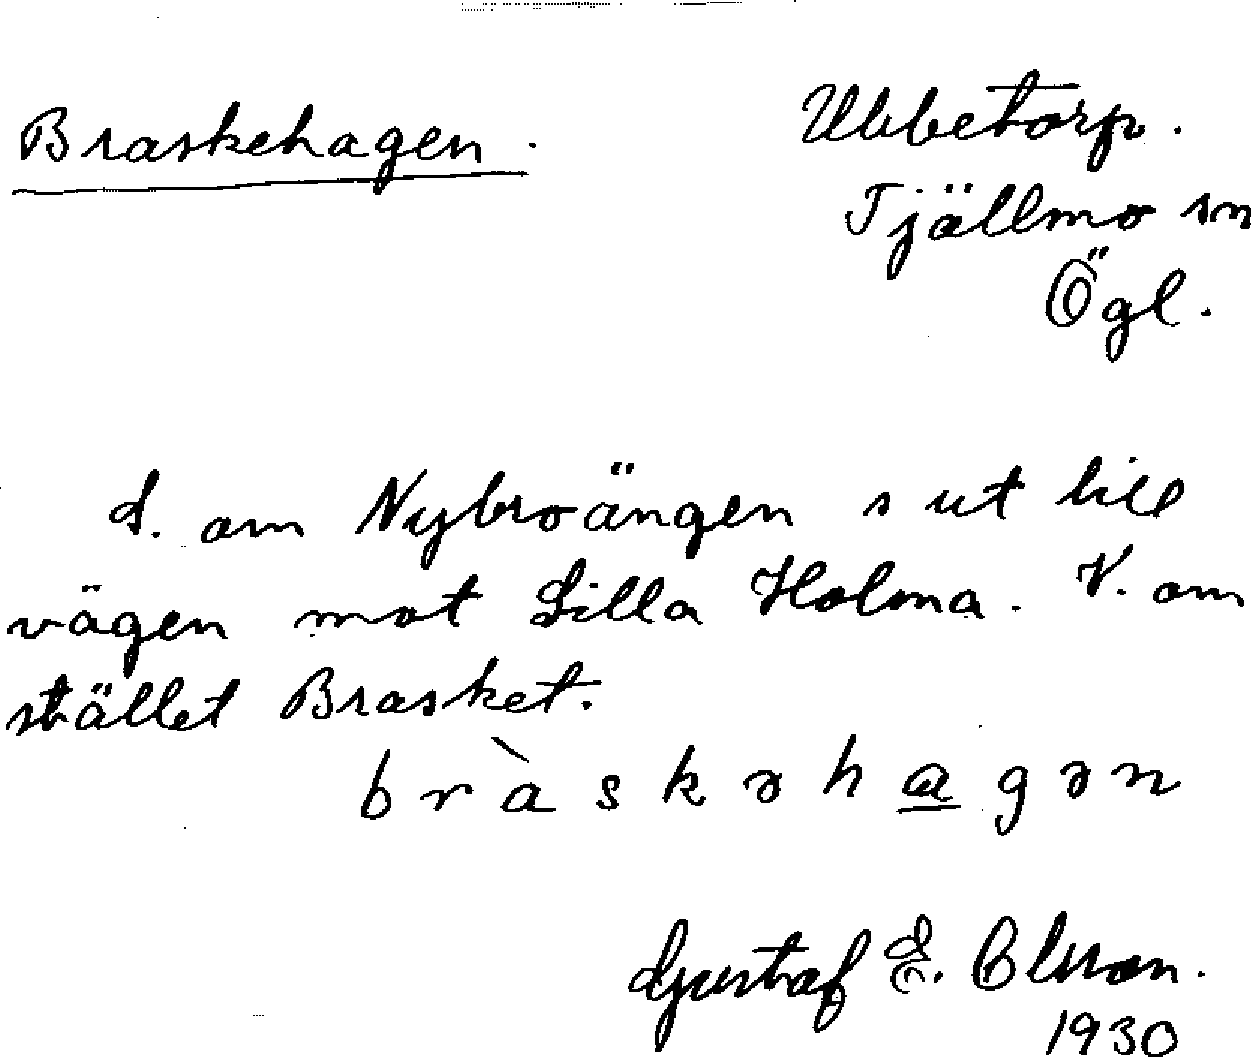 Braskehagen.
Ubbetorp.
Tjällmo sn
Ögl.
S. om Nybroängen s ut till
vägen mot Lilla Holma. V. om
stället Brasket.
bràskəhagən
Gustaf E. Olsson.
1930